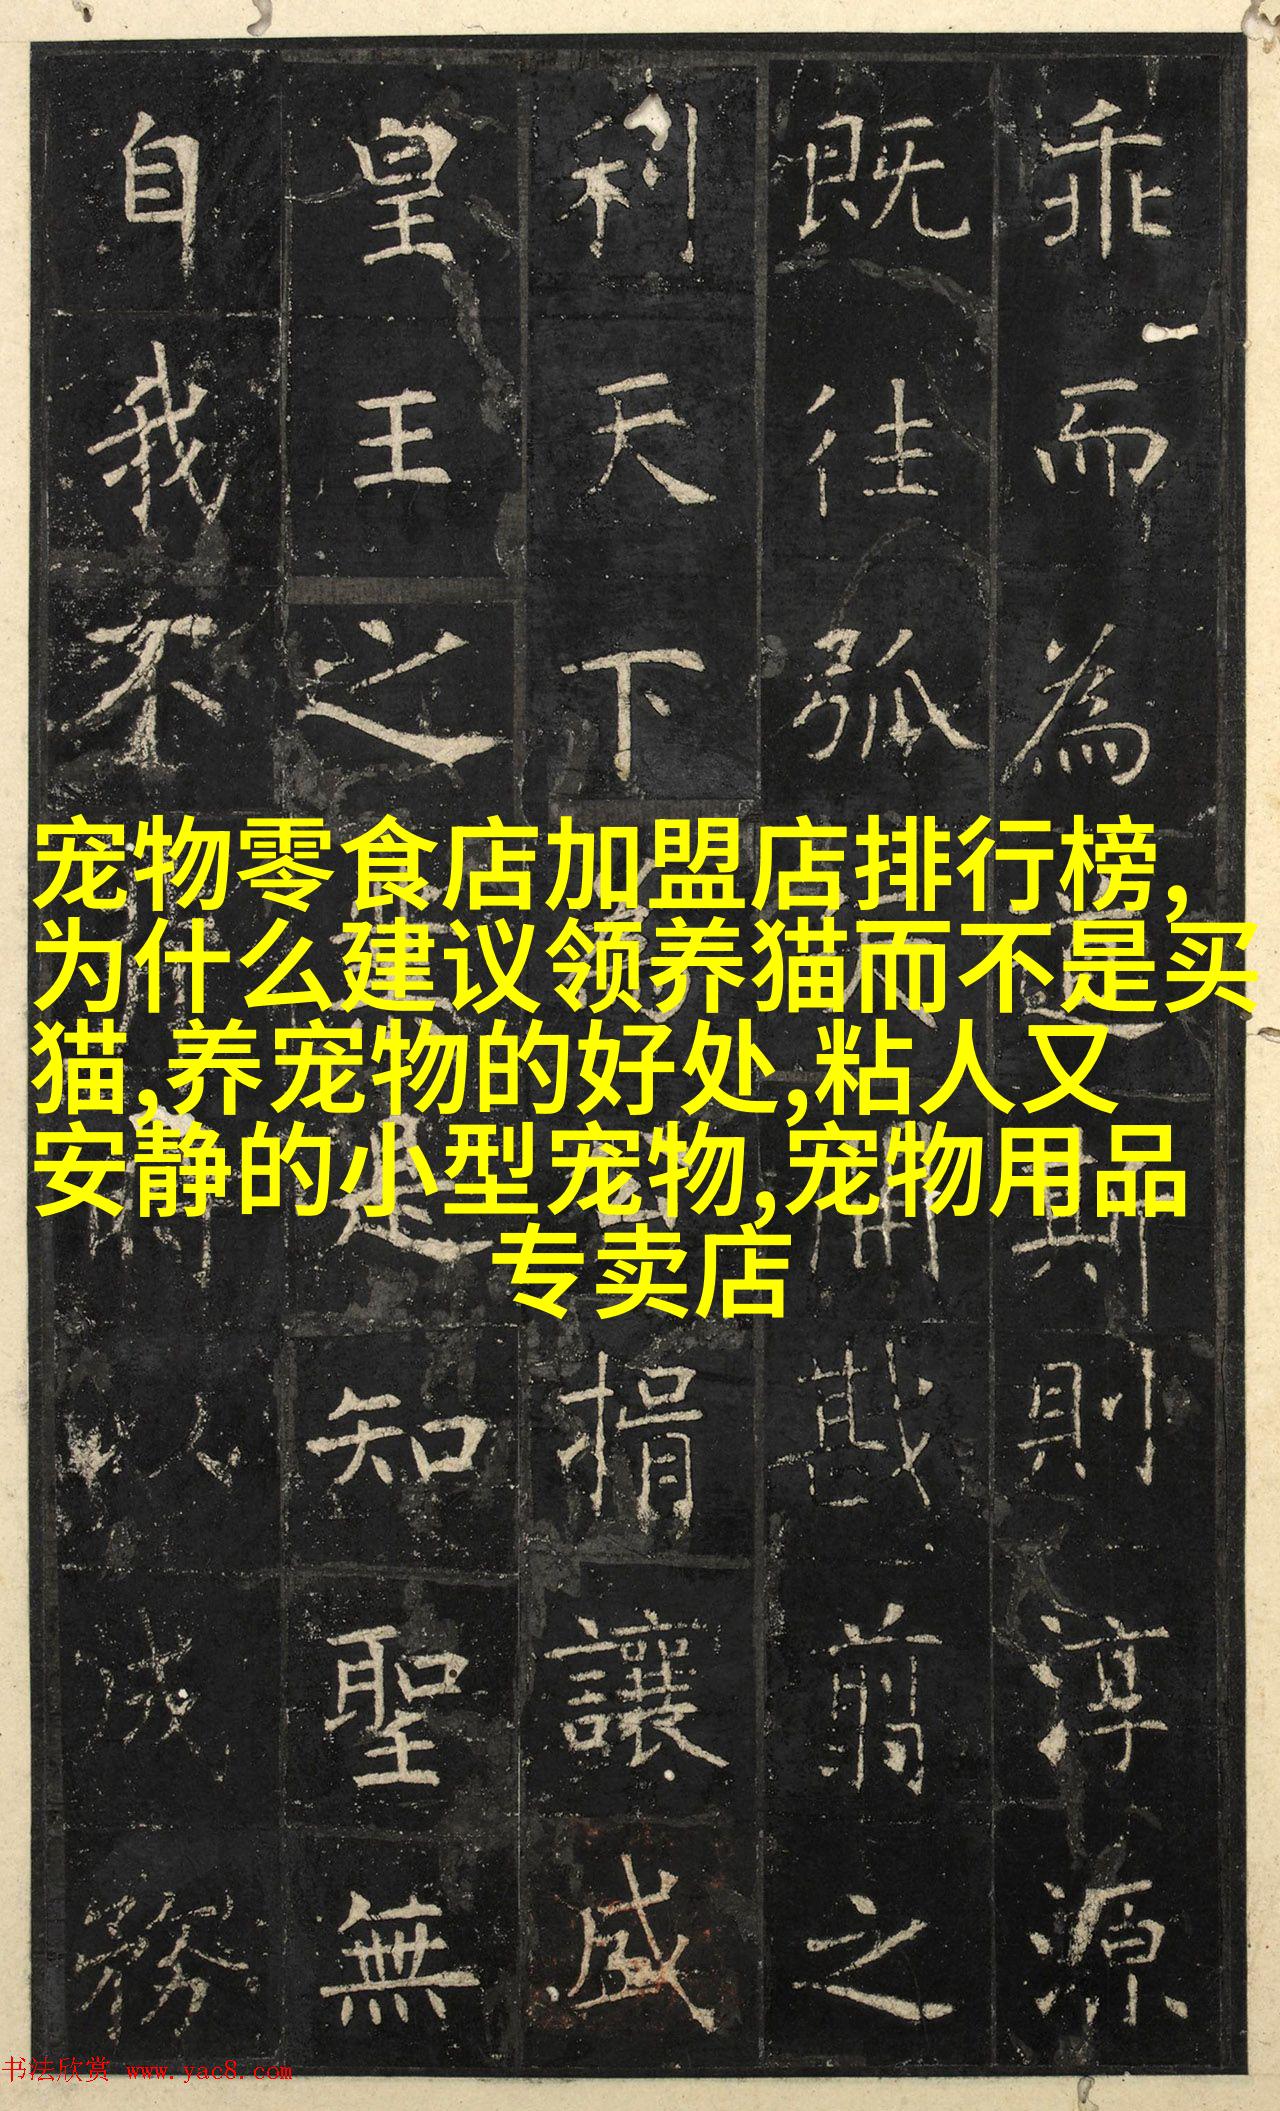 宠物零食店加盟店排行榜,
为什么建议领养猫而不是买
猫,养宠物的好处,粘人又
安静的小型宠物,宠物用品
专卖店
乖而為斯則淳源
既往弧開戡翦之
利天下捐讓咸
皇王之是知聖無
自我不以成務
书法欣赏 www.yac8.com